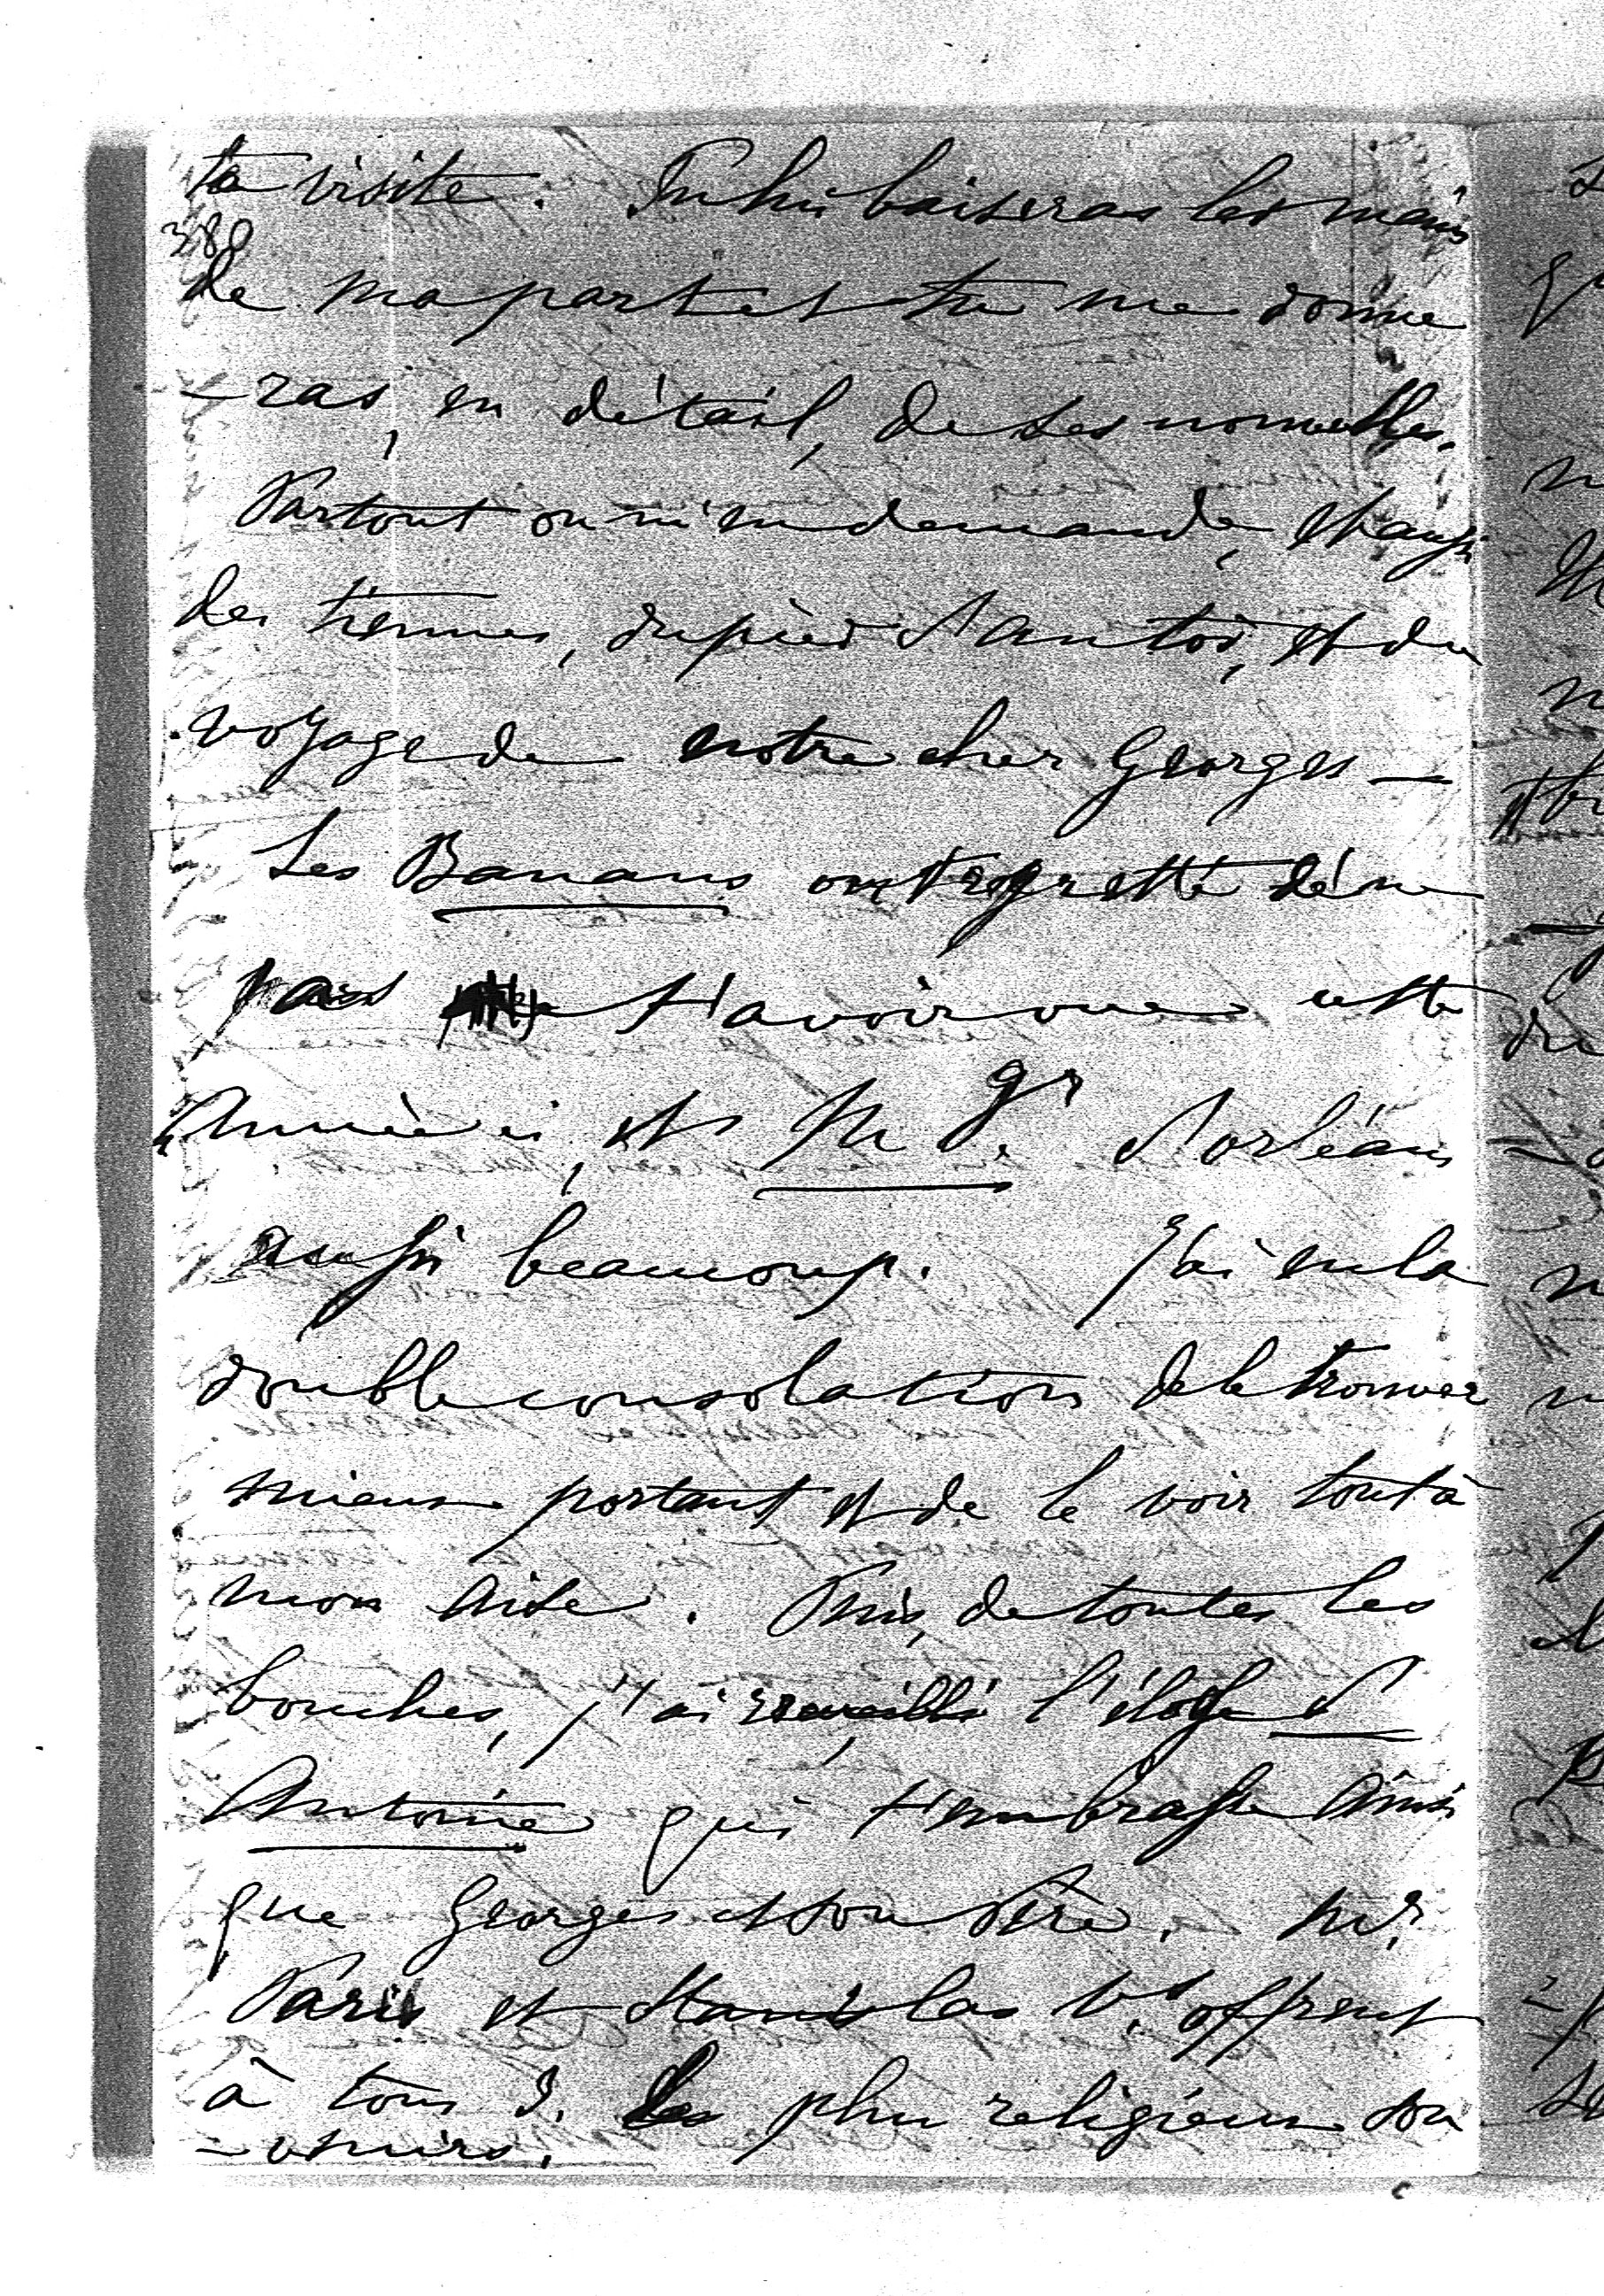 ta visite. Tu lui baiseras les mains
380
de ma part et tu me donne
-ras, en détail, de ses nouvelles.
Partout on m'en demande, et aussi
des tiennes, du père d'Autoi, et du
voyage de notre cher Georges —
Les Banans ont regretté de ne
pas t'avoir vue cette
Année ci, et Mgr. d'orléans
aussi beaucoup. J'ai eu la
double consolation de le trouver
mieux portant et de le voir tout à
mon aise. Puis, de toutes les
bouches, j'ai recueilli l'éloge d'
Antoine qui t'embrasse ainsi
que Georges et son Père. Mr.
Paris et Stanislas Vs. offrent
à tous 3. les plus religieux sou
-venirs.